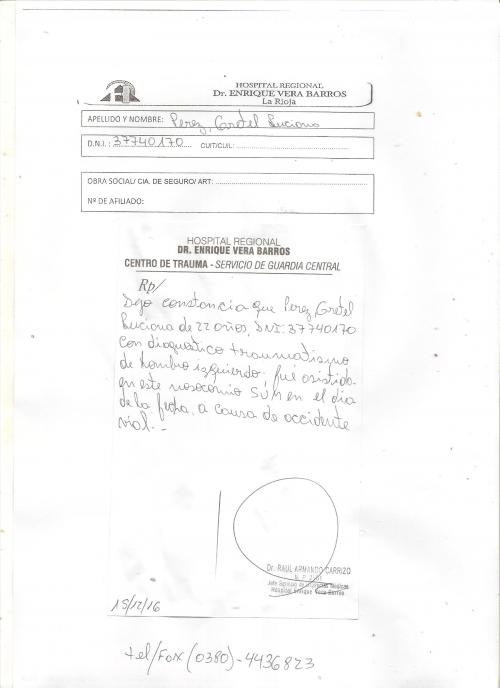 HOSPITAL REGIONAL
Dr. ENRIQUE VERA BARROS
La Rioja
APELLIDO Y NOMBRE: Perez, Gretel Luciana
D.N.I. : 37740170 CUIT/CUIL:
OBRA SOCIAL/ CIA. DE SEGURO/ ART:
Nº DE AFILIADO:
HOSPITAL REGIONAL
DR. ENRIQUE VERA BARROS
CENTRO DE TRAUMA - SERVICIO DE GUARDIA CENTRAL
Rp/
Dejo constancia que Perez, Gretel
Luciana de 22 años, DNI: 37740170
con diagnóstico traumatismo
de hombro izquierdo. fué asistida
en este nosocomio en el dia
de la fecha, a causa de accidente
vial.-
Dr. RAUL ARMANDO CARRIZO
M.P.
Jefe Servicio de Médicos
Hospital Enrique Vera Barros
15/12/16
tel/Fax (0380)-4436823